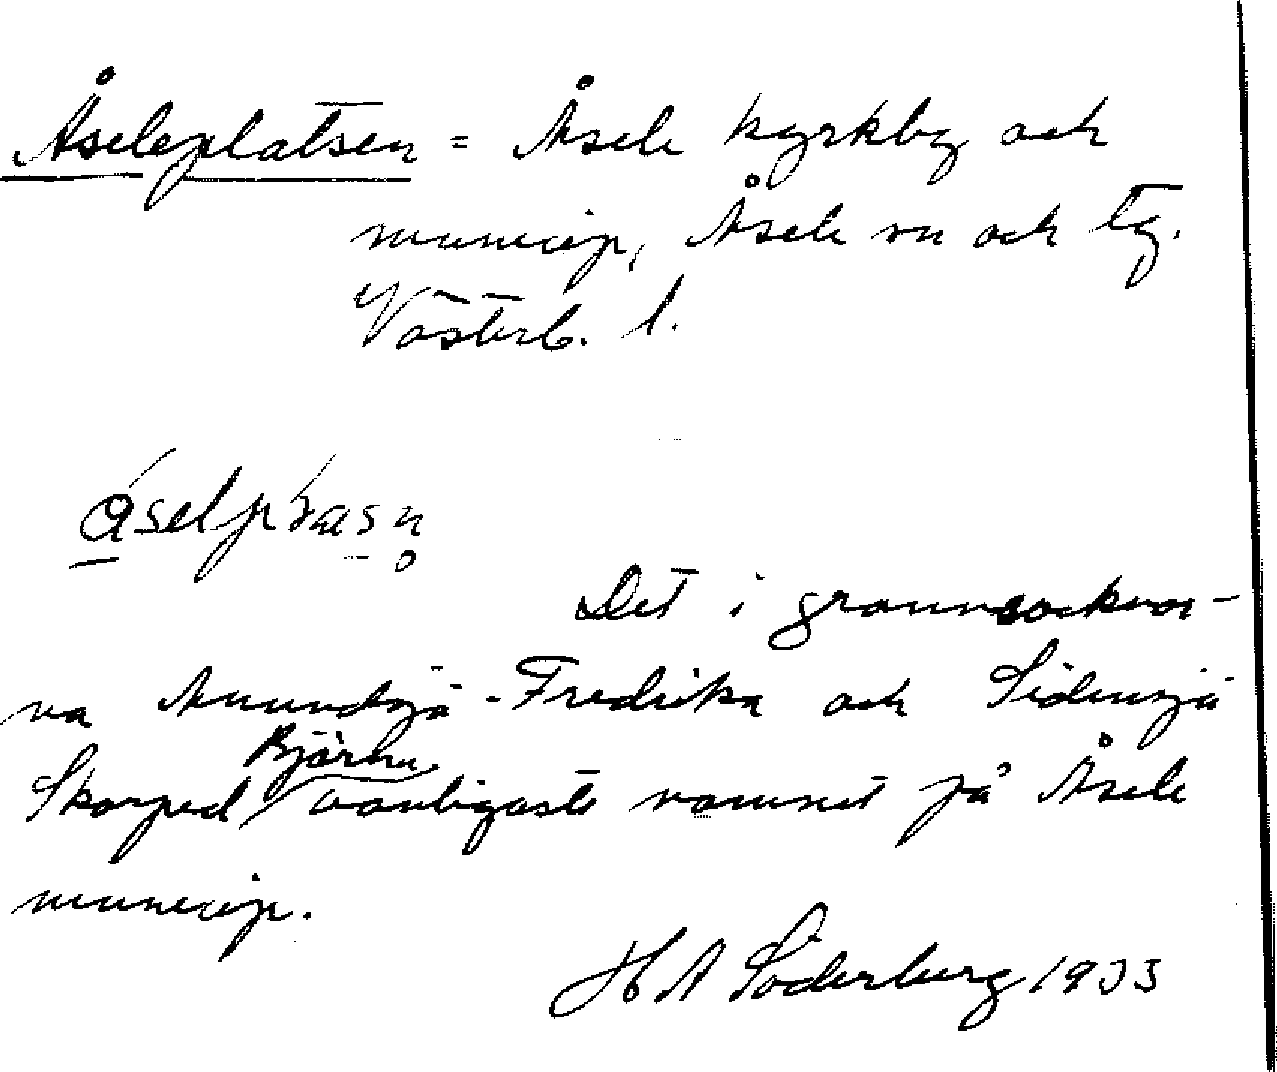 Åseleplatsen = Åsele kyrkby och
municip, Åsele sn och tg.
Västerb. l.
Det i grannsocknar-
na Anundsjö - Fredrika och Sidensjö
Skorped Björna vanligaste namnet på Åsele
municip.
H A Söderberg 1933